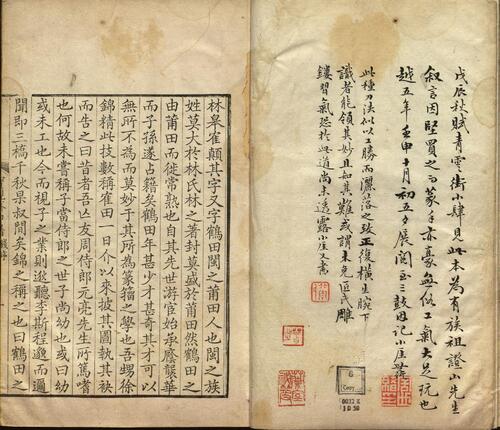 戊辰秋賦青雲街小肆見此本為有族祖證山先生
叙言因亟買之篆手亦豪無俗工氣大足玩也
越五年壬申十月初五夕展閱至三鼓因記小崖
此種刀法似以工勝而灑落之致正復橫生腕下
識者能領其妙且知其難或謂未免匠氏雕
鏤習氣恐於此道尚未透露小崖又書
6
Copy
林皋雀顛其字又字鶴田閩之莆田人也閩之族
姓莫大於林氏林之著封莫盛於莆田然鶴田之
由莆田而徙常熟也自其先世游宦始承廕襲華
而子孫遂占籍矣鶴田年甚少才甚奇其才可以
無所不為而莫妙于其所為篆籀之學也吾甥徐
錦精此技數稱雀田一日介以來披其圖執其袂
而告之曰昔者吾亡友周侍郎元亮先生所篤嗜
也何故未嘗稱子當侍郎之世子尚幼也或曰幼
或未工也今而視子之業則逖聽李斯程邈而遍
聞即三橋千秋杲叔間矣錦之稱之也曰鶴田之